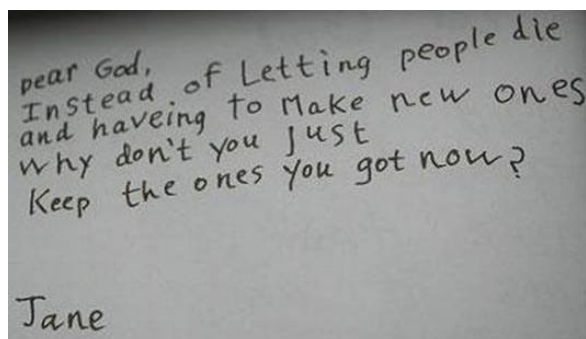 Dear God,
Instead of Letting people die
and haveing to Make new ones
why don't you Just
Keep the ones you got now?
Jane